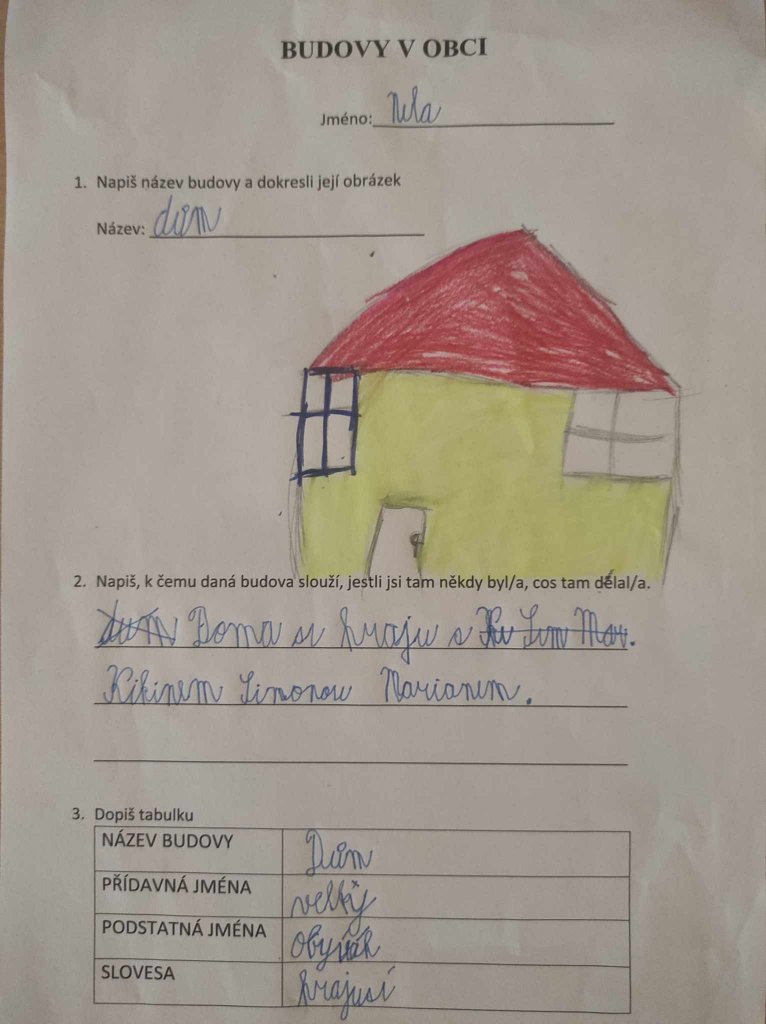 BUDOVY V OBCI
Jméno: Nela
1. Napiš název budovy a dokresli její obrázek
Název: dům
2. Napiš, k čemu daná budova slouží, jestli jsi tam někdy byl/a, cos tam dělal/a.
Doma si hraju s
Kikinem Simonou Marianem.
3. Dopiš tabulku
NÁZEV BUDOVY Dům
PŘÍDAVNÁ JMÉNA velký
PODSTATNÁ JMÉNA obyvák
SLOVESA hrajusi